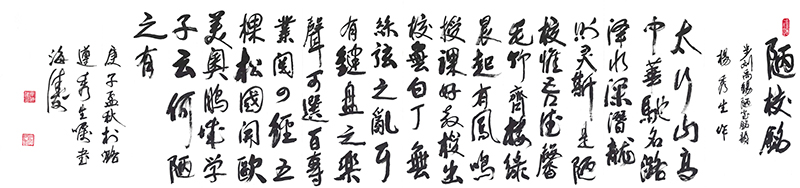 陋校铭
步刘禹锡陋室铭韵
杨秀生作
太行山高
中华驰名
泽水深潜龙
则灵斯是陋
校惟吾德馨
毛竹齐楼绿
晨起有凤鸣
授课好教授出
校无白丁无
丝弦之乱耳
有键盘之乐
声可选百专
业阅四经五
棵松国开欧
美奥鹏城学
子云何陋
之有
庚子孟秋于
遵秀生嘱书
海清